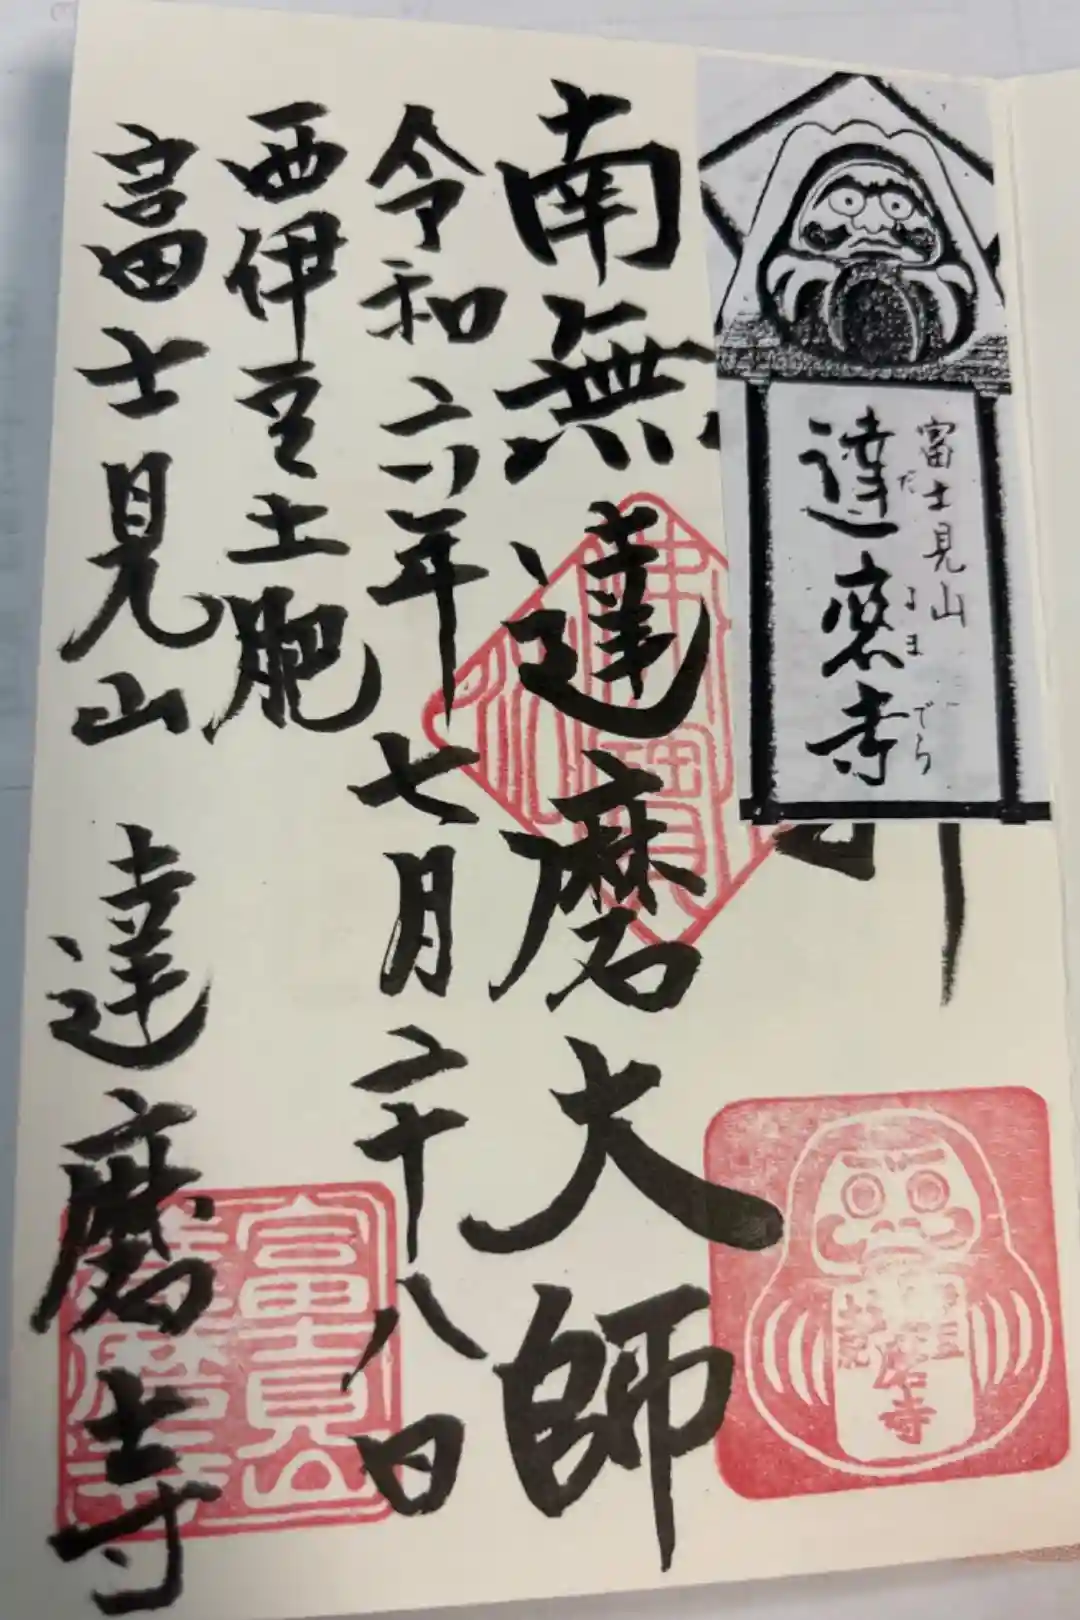 富士見山
達磨寺
だ
るま
でら
南無達磨大師
令和六年七月二十八日
西伊豆土肥
富士見山 達磨寺
富士見山
達磨寺
佛法僧寳
達磨寺
土肥